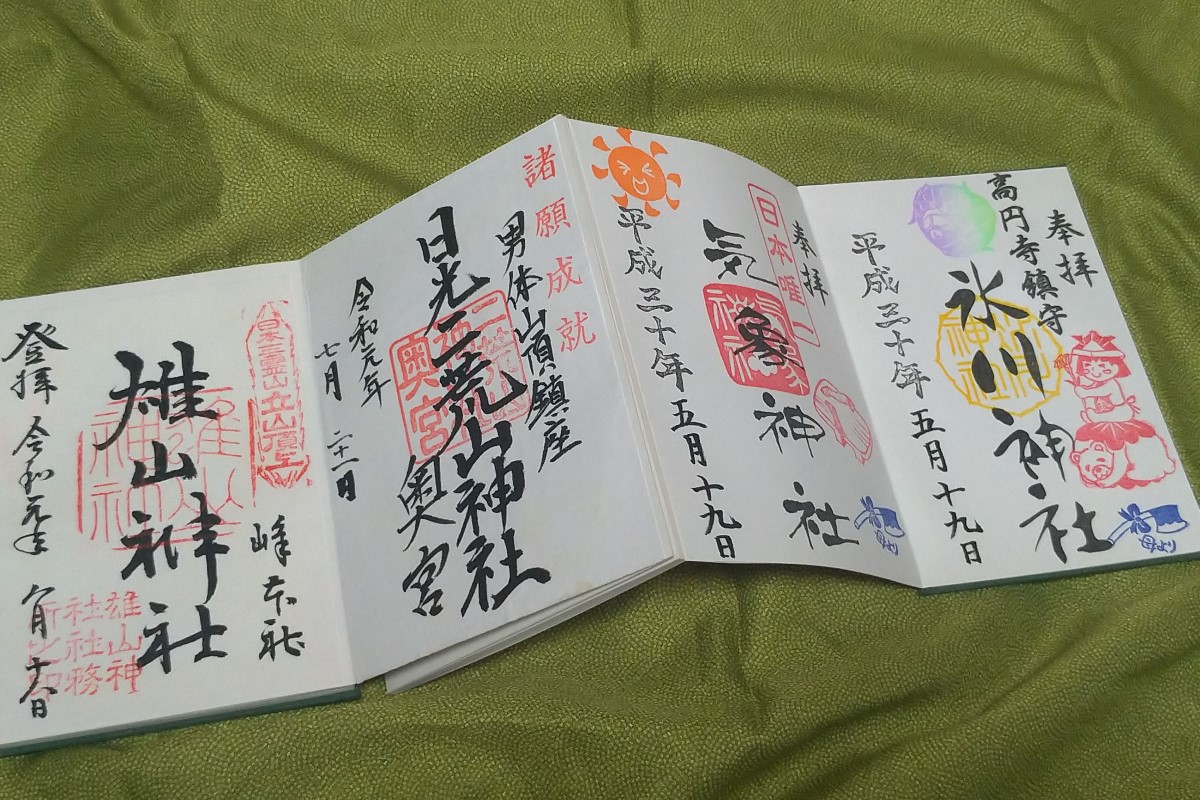 奉拝
高円寺鎮守
氷川神社
平成三十年五月十九日
母より
奉拝
日本唯一
気象神社
平成三十年五月十九日
母より
諸願成就
男体山頂鎮座
日光二荒山神社
奥宮
奥宮
令和元年
七月二十一日
日本三霊山立山頂上
峰本社
雄山神社
雄山神
社社務
所之印
登拝令和元年